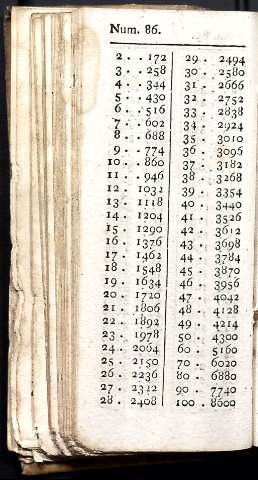 Num. 86.
2 . . 172
3 . . 258
4 . . 344
5 . . 430
6 . . 516
7 . . 602
8 . . 688
9 . . 774
10 . . 860
11 . . 946
12 . 1032
13 . 1118
14 . 1204
15 . 1290
16 . 1376
17 . 1462
18 . 1548
19 . 1634
20 . 1720
21 . 1806
22 . 1892
23 . 1978
24 . 2064
25 . 2150
26 . 2236
27 . 2322
28 . 2408
29 . 2494
30 . 2580
31 . 2666
32 . 2752
33 . 2838
34 . 2924
35 . 3010
36 . 3096
37 . 3182
38 . 3268
39 . 3354
40 . 3440
41 . 3526
42 . 3612
43 . 3698
44 . 3784
45 . 3870
46 . 3956
47 . 4042
48 . 4128
49 . 4214
50 . 4300
60 . 5160
70 . 6020
80 . 6880
90 . 7740
100 . 8600